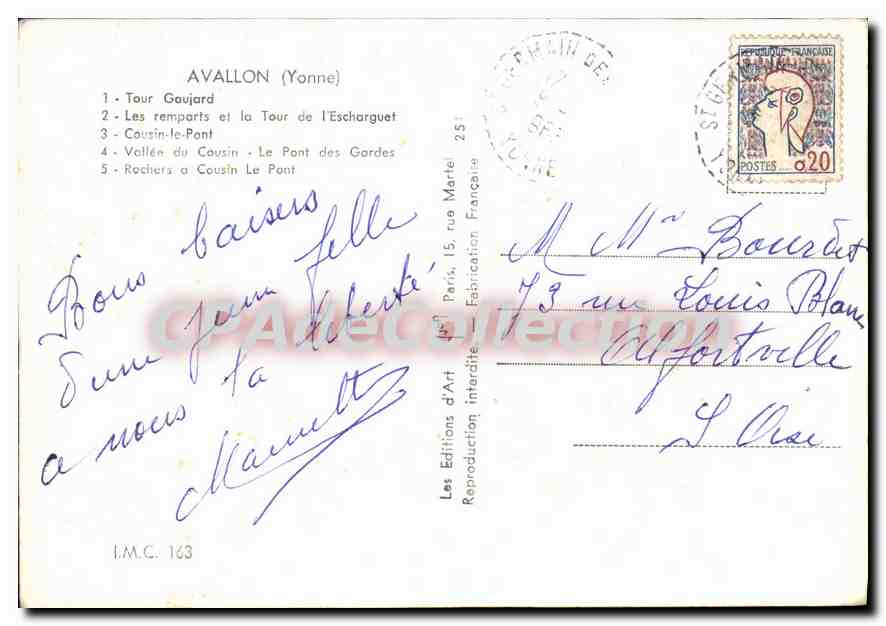 AVALLON (Yonne)
1 - Tour Gaujard
2 - Les remparts et la Tour de l'Escharguet
3 - Cousin-le-Pont
4 - Vallée du Cousin - Le Pont des Gardes
5 - Rochers a Cousin Le Pont
Bons baisers
d'une jeune fille
a nous la liberté
I.M.C. 163
Les Editions d'Art Paris, 15, rue Martel 251
Reproduction interdite — Fabrication Française
ST GERMAIN DES
YONNE
REPUBLIQUE FRANÇAISE
POSTES 0,20
M Mr Bourdet
73 rue Louis Blanc
Alfortville
L'Oise
CPAdeCollection